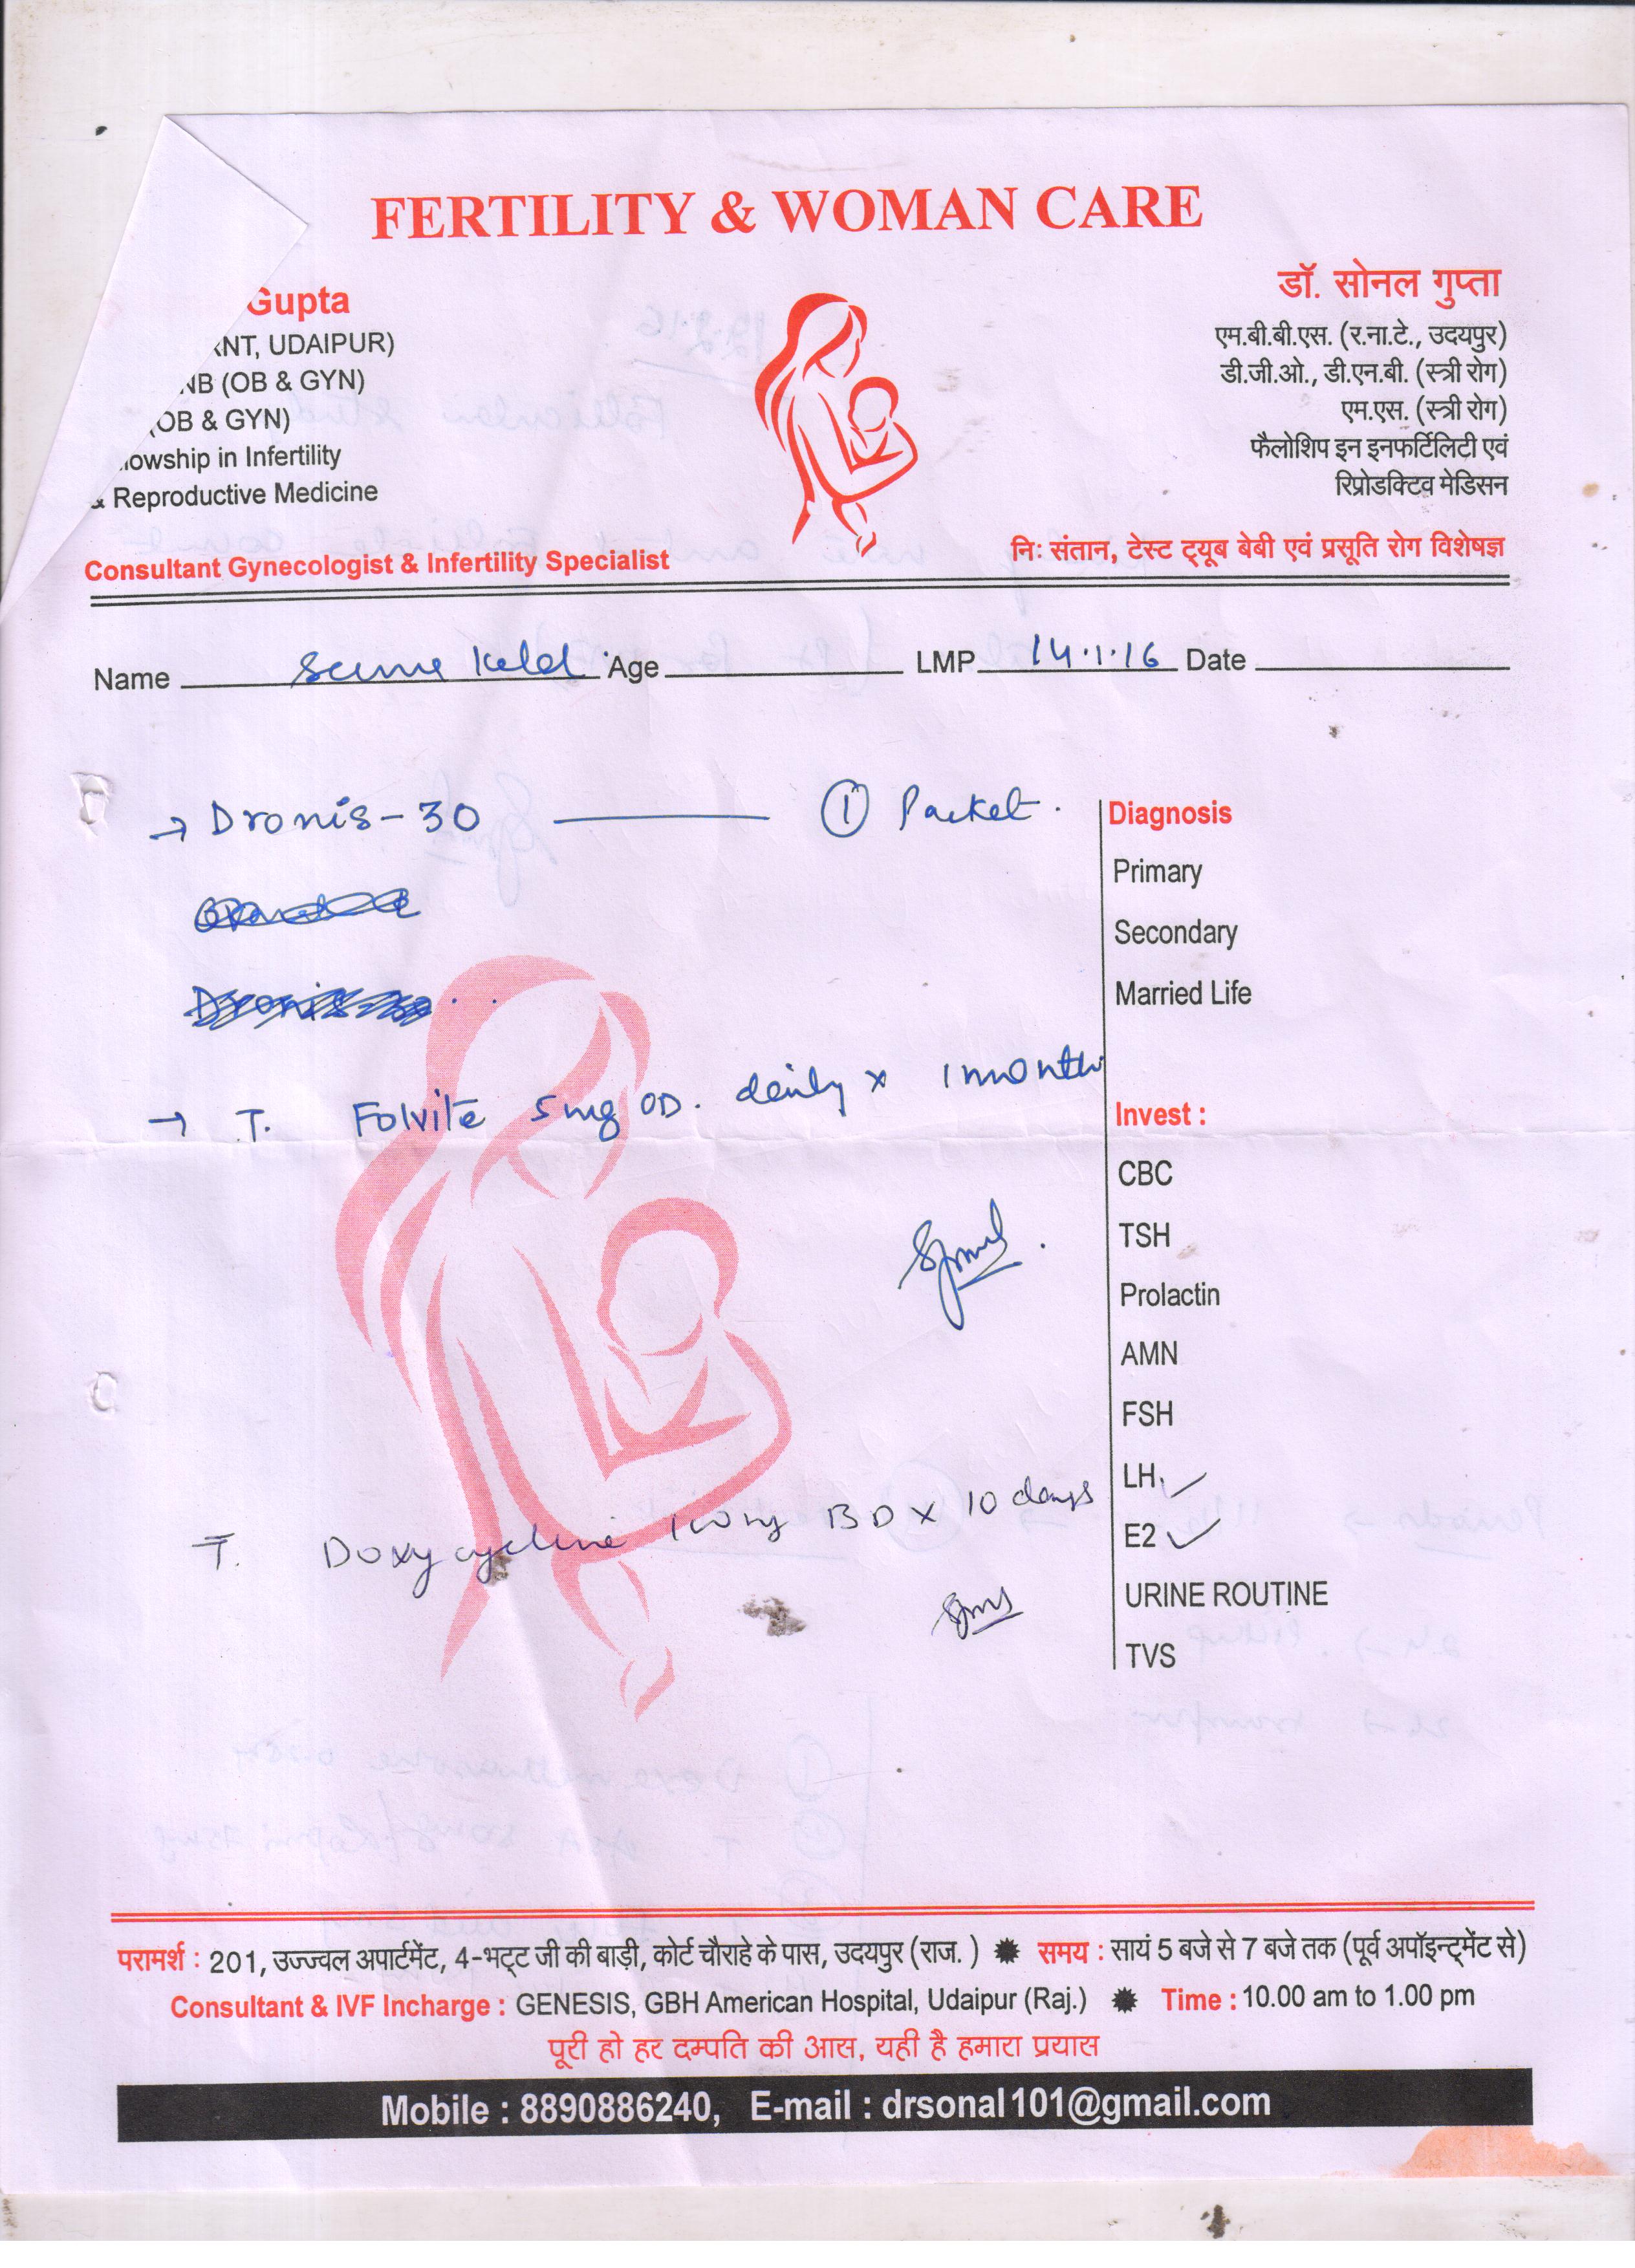 FERTILITY & WOMAN CARE
Gupta
RNT, UDAIPUR)
NB (OB & GYN)
(OB & GYN)
lowship in Infertility
& Reproductive Medicine
Consultant Gynecologist & Infertility Specialist
डॉ. सोनल गुप्ता
एम.बी.बी.एस. (र.ना.टे., उदयपुर)
डी.जी.ओ., डी.एन.बी. (स्त्री रोग)
एम.एस. (स्त्री रोग)
फैलोशिप इन इनफर्टिलिटी एवं
रिप्रोडक्टिव मेडिसन
निः संतान, टेस्ट ट्यूब बेबी एवं प्रसूति रोग विशेषज्ञ
Name Age LMP 14.1.16 Date
→ Dronis-30 — ① Packet.
→ T. Folvite 5mg OD. daily x 1 month
T. Doxycycline 100mg BD x 10 days
Diagnosis
Primary
Secondary
Married Life
Invest :
CBC
TSH
Prolactin
AMN
FSH
LH ✓
E2 ✓
URINE ROUTINE
TVS
परामर्श : 201, उज्ज्वल अपार्टमेंट, 4-भट्ट जी की बाड़ी, कोर्ट चौराहे के पास, उदयपुर (राज. ) समय : सायं 5 बजे से 7 बजे तक (पूर्व अपॉइन्ट्मेंट से)
Consultant & IVF Incharge : GENESIS, GBH American Hospital, Udaipur (Raj.) Time : 10.00 am to 1.00 pm
पूरी हो हर दम्पति की आस, यही है हमारा प्रयास
Mobile : 8890886240, E-mail : drsonal101@gmail.com